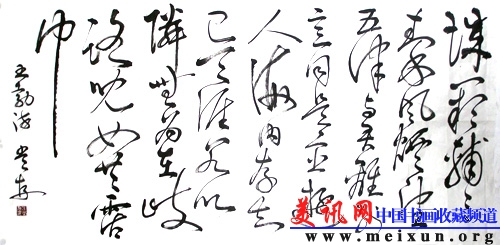 城阙辅三
秦风烟望
五津与君離别
意同是宦遊
人海内存知
己天涯若比
隣無为在岐
路児女共霑
巾
王勃诗
美讯网 中国书画收藏频道
www.meixun.org